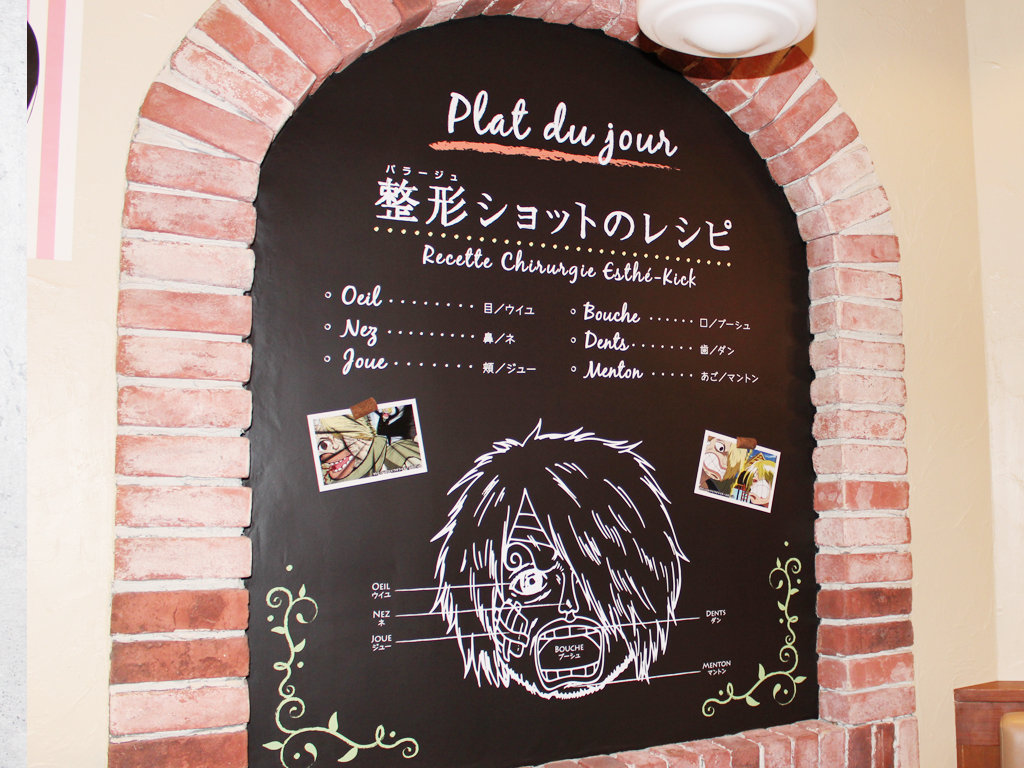 Plat du jour
パラージュ
整形ショットのレシピ
Recette Chirurgie Esthé-Kick
Oeil ・・・・・・・・ 目/ウイユ
Nez ・・・・・・・・ 鼻/ネ
Joue ・・・・・・・・ 頬/ジュー
Bouche ・・・・・・ 口/ブーシュ
Dents ・・・・・・・ 歯/ダン
Menton ・・・・・ あご/マントン
OEIL
ウイユ
NEZ
ネ
JOUE
ジュー
BOUCHE
ブーシュ
DENTS
ダン
MENTON
マントン